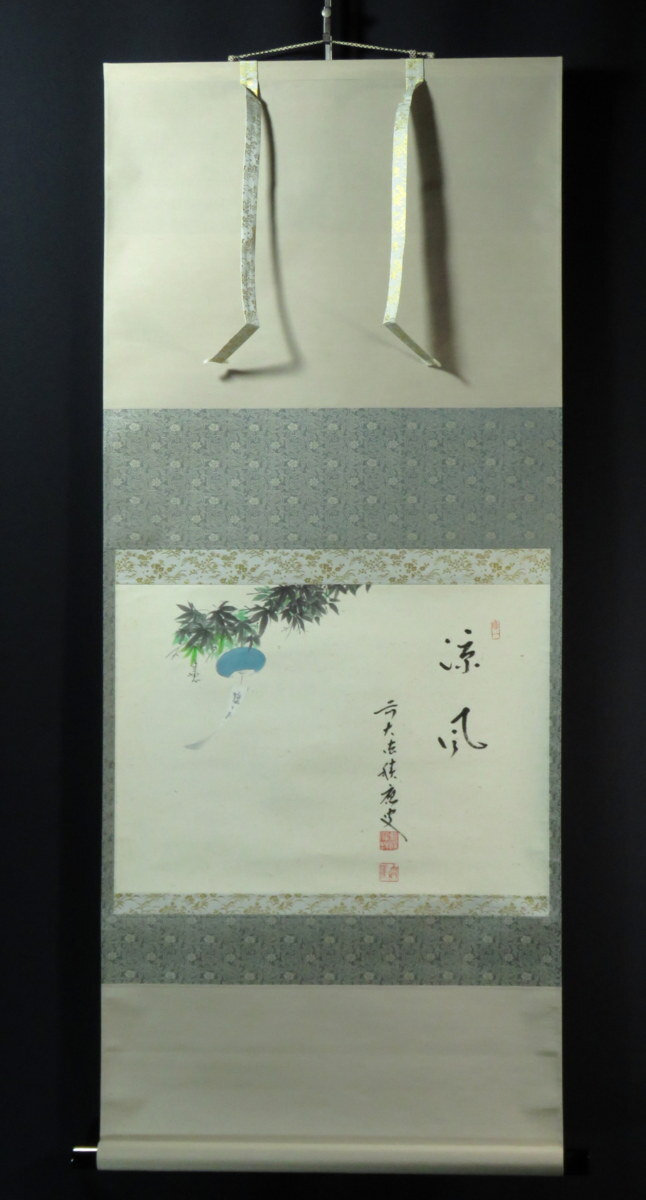 涼風
前大徳積應叟